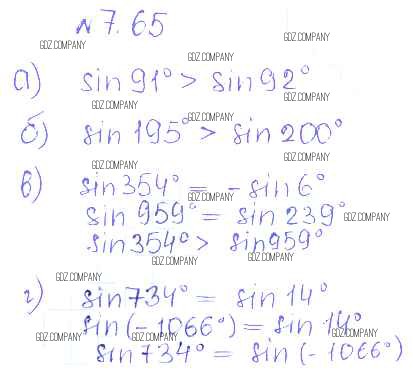 № 7.65
GDZ.COMPANY GDZ.COMPANY
GDZ.COMPANY
а) sin 91° > sin 92°
GDZ.COMPANY GDZ.COMPANY
GDZ.COMPANY
б) sin 195° > sin 200°
GDZ.COMPANY GDZ.COMPANY
в) sin 354° = - sin 6°
GDZ.COMPANY
sin 959° = sin 239°
GDZ.COMPANY
sin 354° > sin 959°
GDZ.COMPANY GDZ.COMPANY
GDZ.COMPANY
г) sin 734° = sin 14°
sin (- 1066°) = sin 14°
GDZ.COMPANY GDZ.COMPANY GDZ.COMPANY
sin 734° = sin (- 1066°)